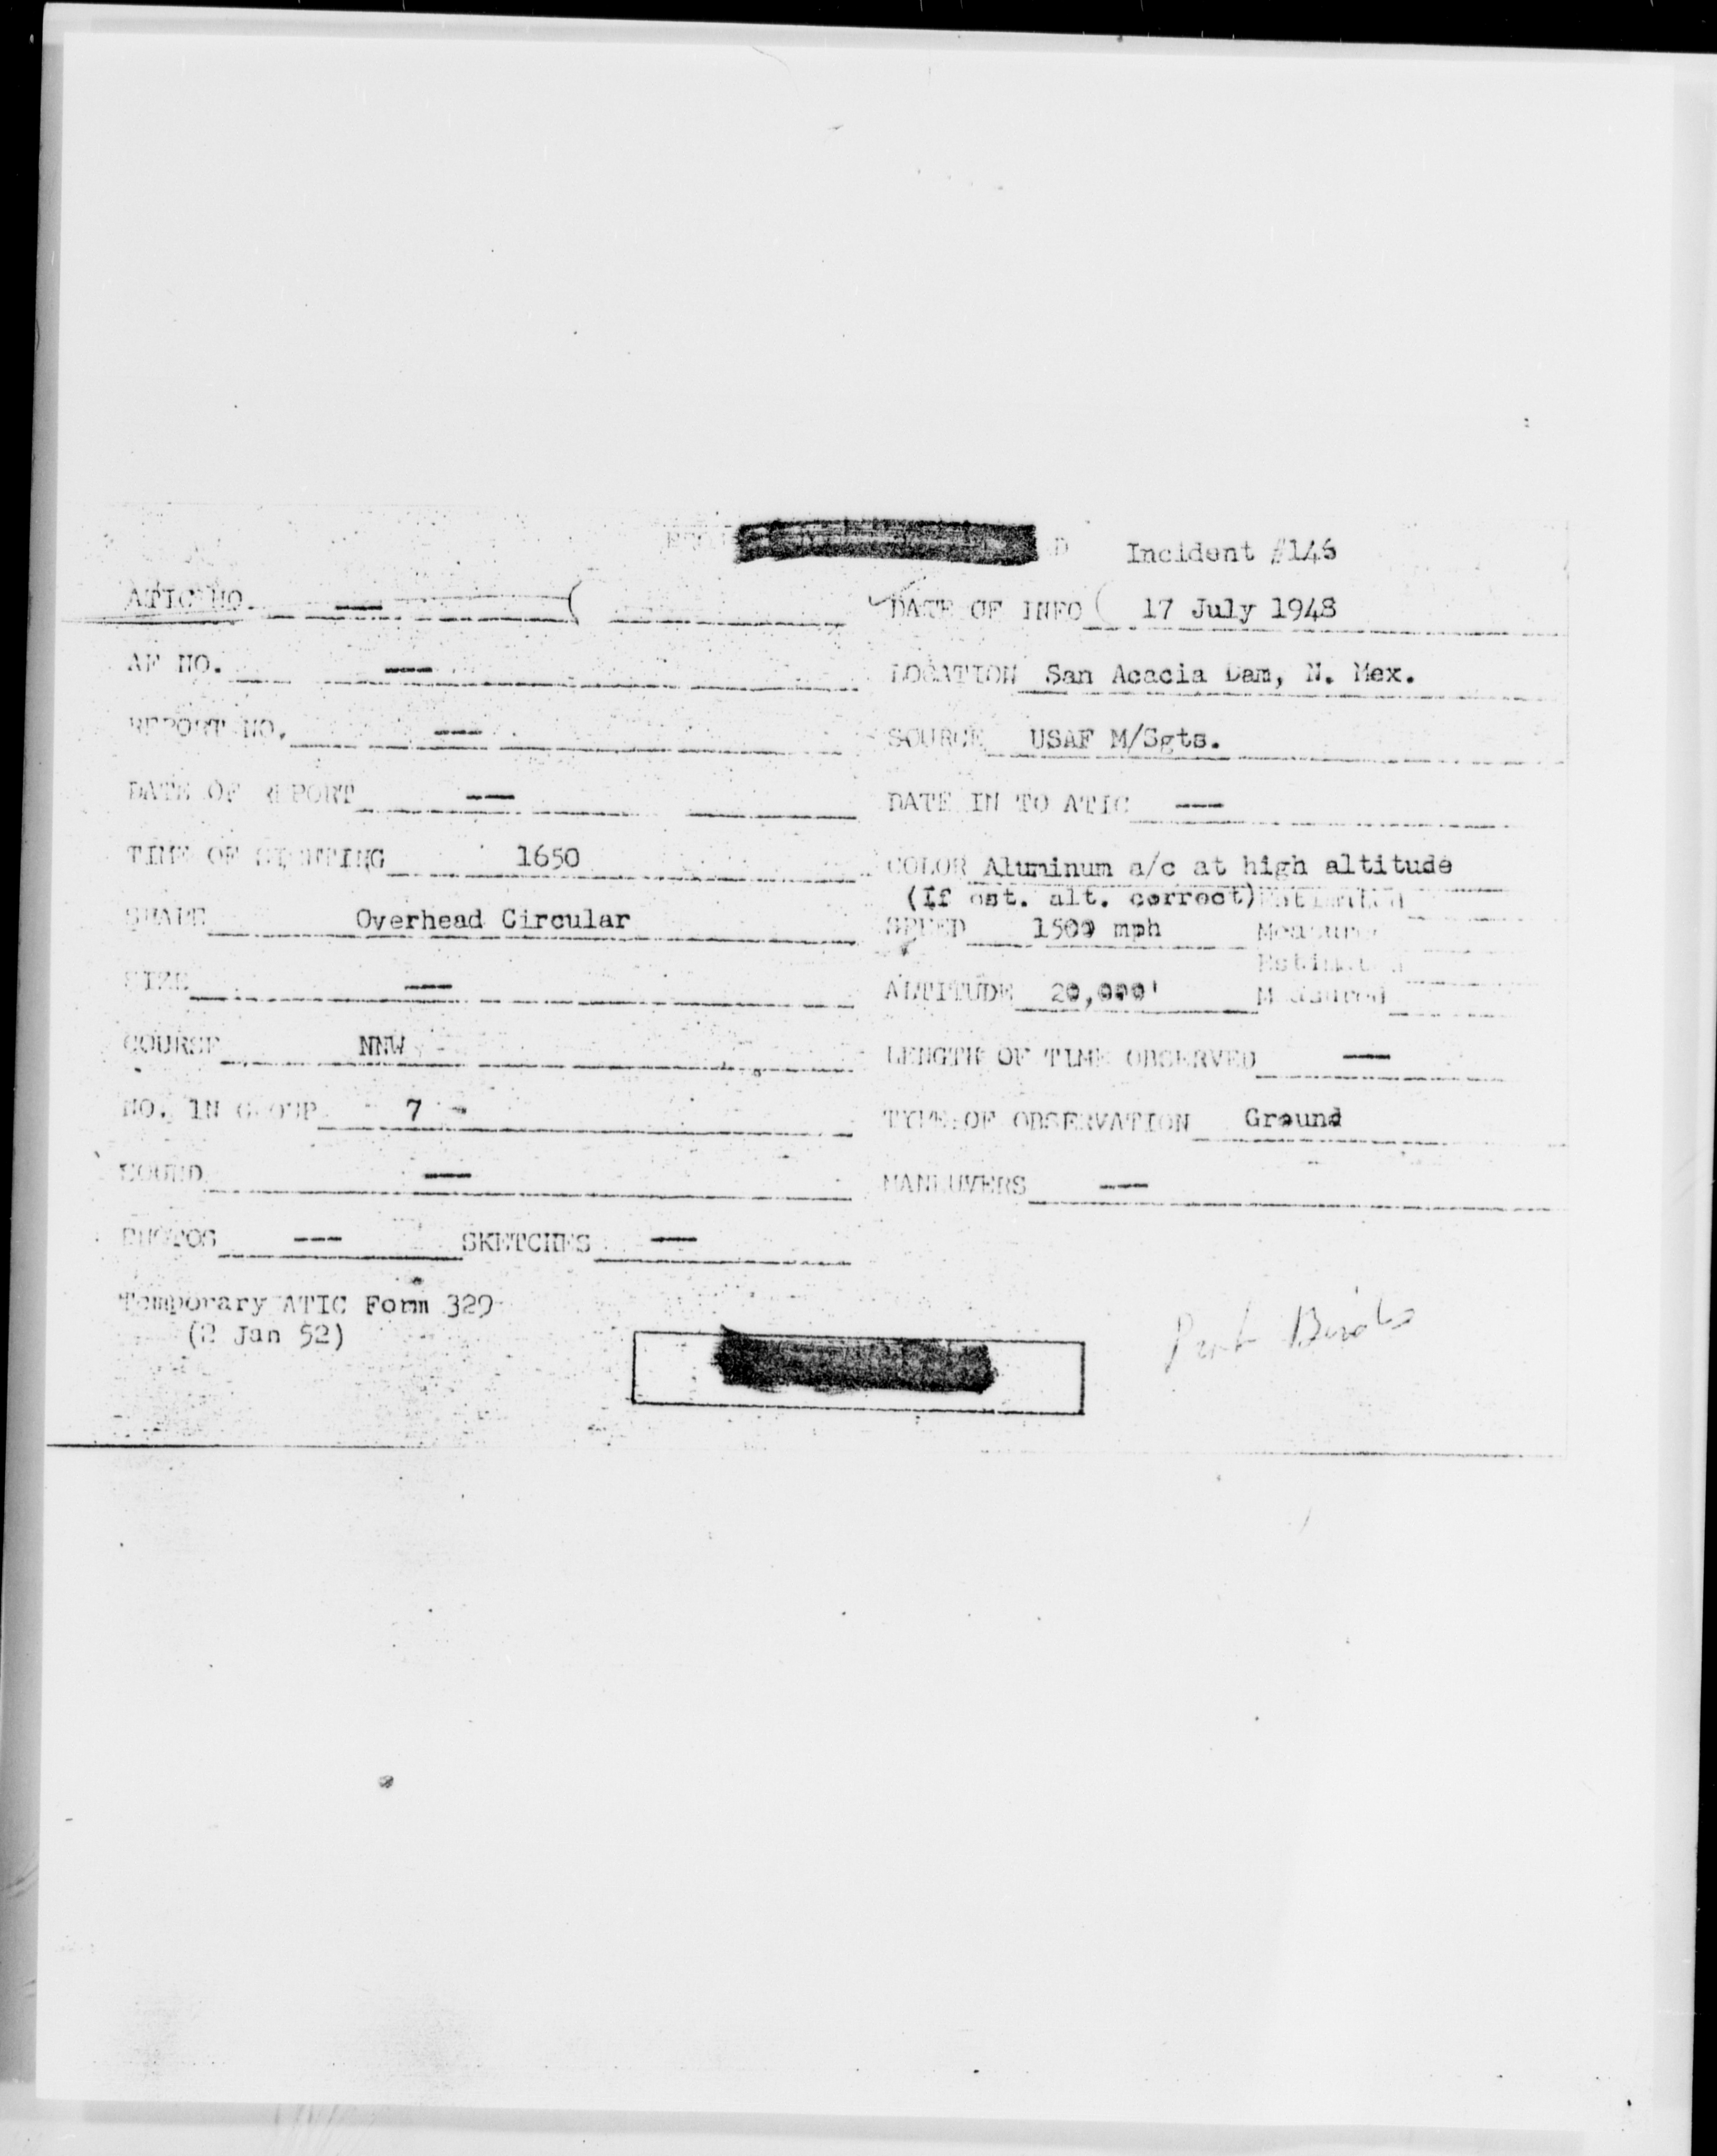 Incident #146
ATIC NO. — DATE OF INFO 17 July 1948
AF NO. — LOCATION San Acacia Dam, N. Mex.
REPORT NO. — SOURCE USAF M/Sgts.
DATE OF REPORT — DATE IN TO ATIC —
TIME OF SIGHTING 1650 COLOR Aluminum a/c at high altitude
(If est. alt. correct) Estimated
SHAPE Overhead Circular SPEED 1500 mph Measured
Estimated
SIZE — ALTITUDE 20,000' Measured
COURSE NNW LENGTH OF TIME OBSERVED —
NO. IN GROUP 7 TYPE OF OBSERVATION Ground
SOUND — MANEUVERS —
PHOTOS — SKETCHES —
Temporary ATIC Form 329
(2 Jan 52)
Birds